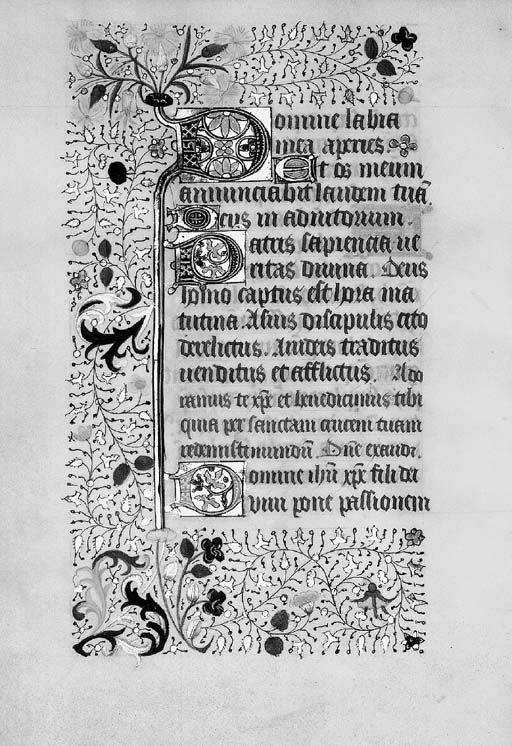 Domine labia
mea aperies.
Et os meum
annunciabit laudem tuā.
Deus in adiutorium.
Patris sapiencia ve
ritas divina. Deus
homo captus est hora ma
tutina. A suis discipulis cito
derelictus. A iudeis traditus
venditus et afflictus. Ado
ramus te xp̄e et benedicimus tibi
quia per sanctam crucem tuam
redemisti mundū. Dn̄e exaudi.
Domine ihū xp̄e fili dei
vivi pone passionem